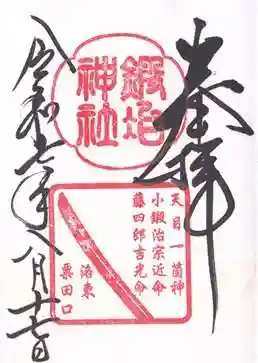 奉拝
鍛冶
神社
天目一箇神
小鍛治宗近命
藤四郎吉光命
洛東
粟田口
令和七年八月